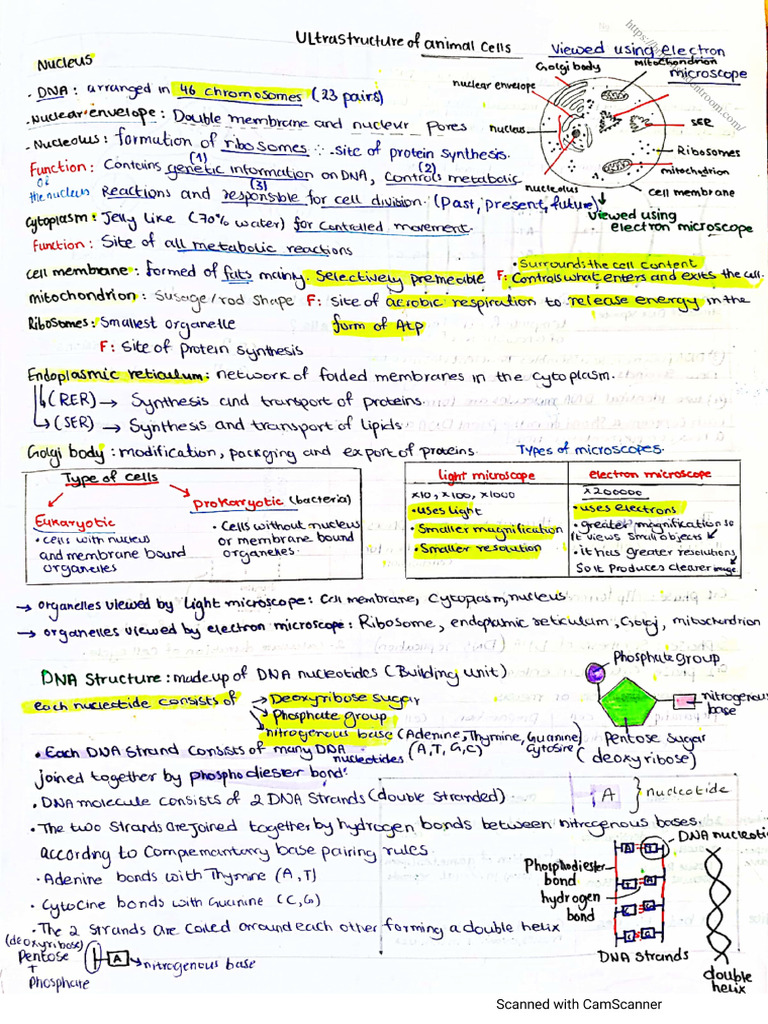 Ultrastructure of animal cells
Viewed using electron microscope
Nucleus
. DNA: arranged in 46 chromosomes (23 pairs)
. Nuclear envelope: Double membrane and nucleur pores
. Nucleolus: formation of ribosomes ∴ site of protein synthesis.
Function: Contains genetic information on DNA, Controls metabolic
(1)
(2)
of the nucleus
Reactions and responsible for cell division. (Past, present, future)
(3)
Golgi body
mitochondrion
nuclear envelope
SER
nucleus
Ribosomes
mitochondrion
nucleolus
cell membrane
viewed using
electron microscope
Cytoplasm: Jelly like (70% water) for controlled movement.
Function: Site of all metabolic reactions
• Surrounds the cell content
cell membrane: formed of fats mainly. Selectively premeable F: Controls what enters and exits the cell.
mitochondrion: Susage/rod shape F: site of aerobic respiration to release energy in the
form of Atp
Ribosomes: Smallest organelle
F: Site of protein synthesis
Endoplasmic reticulum: network of folded membranes in the cytoplasm.
↳(RER) → Synthesis and transport of proteins.
↳(SER) → Synthesis and transport of lipids.
Golgi body: modification, packging and export of proteins.
Types of microscopes.
Type of cells
Eukaryotic
• cells with nucleus
and membrane bound
organelles
prokaryotic (bacteria)
• Cells without nucleus
or membrane bound
organelles.
light microscope
x10, x100, x1000
• uses light
• Smaller magnification
• Smaller resolution
electron microscope
x200000
• uses electrons
• greater magnification so
it views small objects
• it has greater resolutions
So it produces clearer image
→ organelles viewed by light microscope: Cell membrane, Cytoplasm, nucleus
→ organelles viewed by electron microscope: Ribosome, endoplasmic reticulum, Golgi, mitochondrion
DNA Structure: made up of DNA nucleotides (Building unit)
each nucleotide consists of → Deoxyribose sugar
→ Phosphate group
→ nitrogenous base (Adenine, Thymine, Guanine)
cytosine
(A, T, G, C)
Phosphate group
nitrogenous
base
Pentose sugar
(deoxyribose)
• Each DNA strand consists of many DNA
nucleotides
joined together by phosphodiester bond.
A } nucleotide
• DNA molecule consists of 2 DNA strands (double stranded).
• The two strands are joined together by hydrogen bonds between nitrogenous bases.
according to Complementary base pairing rules
• Adenine bonds with Thymine (A, T)
• Cytocine bonds with Guanine (C, G)
• The 2 strands are coiled around each other forming a double helix
DNA nucleotide
Phosphodiester
bond
hydrogen
bond
DNA strands
double
helix
(deoxyribose)
Pentose
+
Phosphate
A → nitrogenous base
Scanned with CamScanner